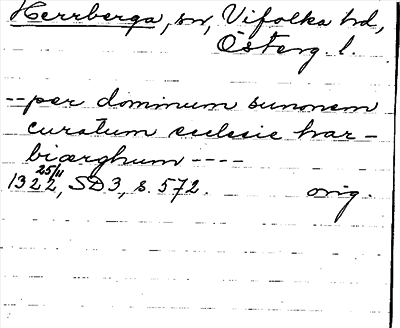 Herrberga, sn, Vifolka hd,
Österg. l.
-- per dominum sunonem
curatum ecclesie har-
biærghum ----
25/11
1322, SD 3, s. 572. orig.